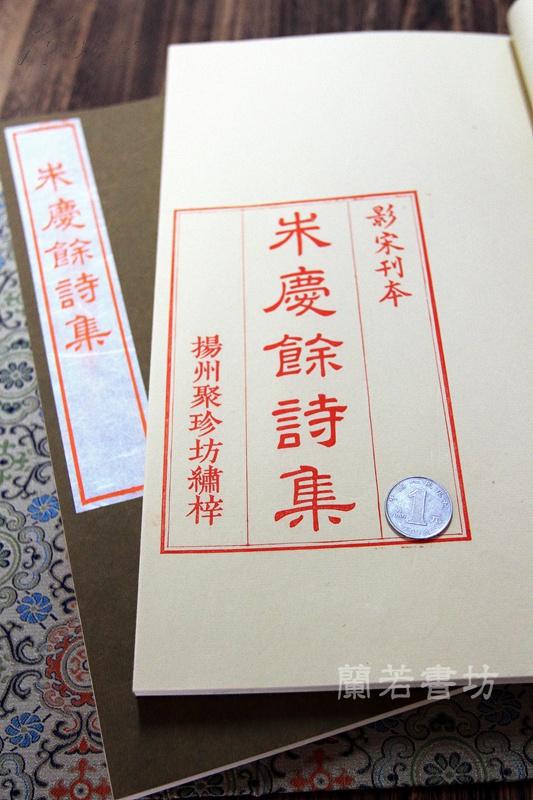 影宋刊本
朱慶餘詩集
揚州聚珍坊繡梓
朱慶餘詩集
1
蘭若書坊